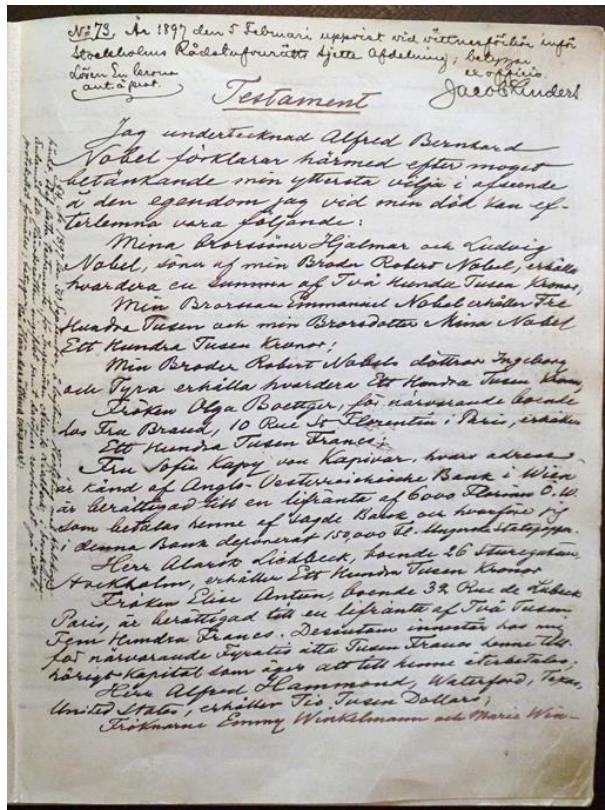 No 73. År 1897 den 5 Februari uppvist vid vittnesförhör inför
Stockholms Rådstufvurätts sjette Afdelning; betygar
Lösen En krona
ex officio
Testament
Jag undertecknad Alfred Bernhard
Nobel förklarar härmed efter moget
betänkande min yttersta vilja i afseende
å den egendom jag vid min död kan ef-
terlemna vara följande:
Mina Brorssöner Hjalmar och Ludvig
Nobel, söner af min Broder Robert Nobel, erhålla
hvardera en summa af Två Hundra Tusen Kronor;
Min Brorsson Emmanuel Nobel erhåller Tre
Hundra Tusen och min Brorsdotter Mina Nobel
Ett Hundra Tusen Kronor;
Min Broder Robert Nobels döttrar Ingeborg
och Tyra erhålla hvardera Ett Hundra Tusen Kronor
Fröken Olga Boettger, för närvarande boende
hos Fru Brand, 10 Rue St Florentin i Paris, erhåller
Ett Hundra Tusen Francs;
Fru Sofie Kapy von Kapivar, hvars adress
är känd af Anglo-Oesterreichische Bank i Wien
är berättigad till en lifränta af 6000 Florins Ö.W.
som betalas henne af sagde Bank och hvarför jag
i denna Bank deponerat 150,000 Fl. i Ungerska Statspapper
Herr Alarik Liedbeck, boende 26 Sturegatan,
Stockholm, erhåller Ett Hundra Tusen Kronor
Fröken Elise Antun, boende 32 Rue de Lubeck
Paris, är berättigad till en lifränta af Två Tusen
Fem Hundra Francs. Dessutom innestår hos mig
för närvarande Fyratio åtta Tusen Francs henne till-
hörigt Kapital som äger att till henne återbetalas;
Herr Alfred Hammond, Waterford, Texas,
United States, erhåller Tio Tusen Dollars;
Fröknarne Emmy Winkelmann och Marie Win-